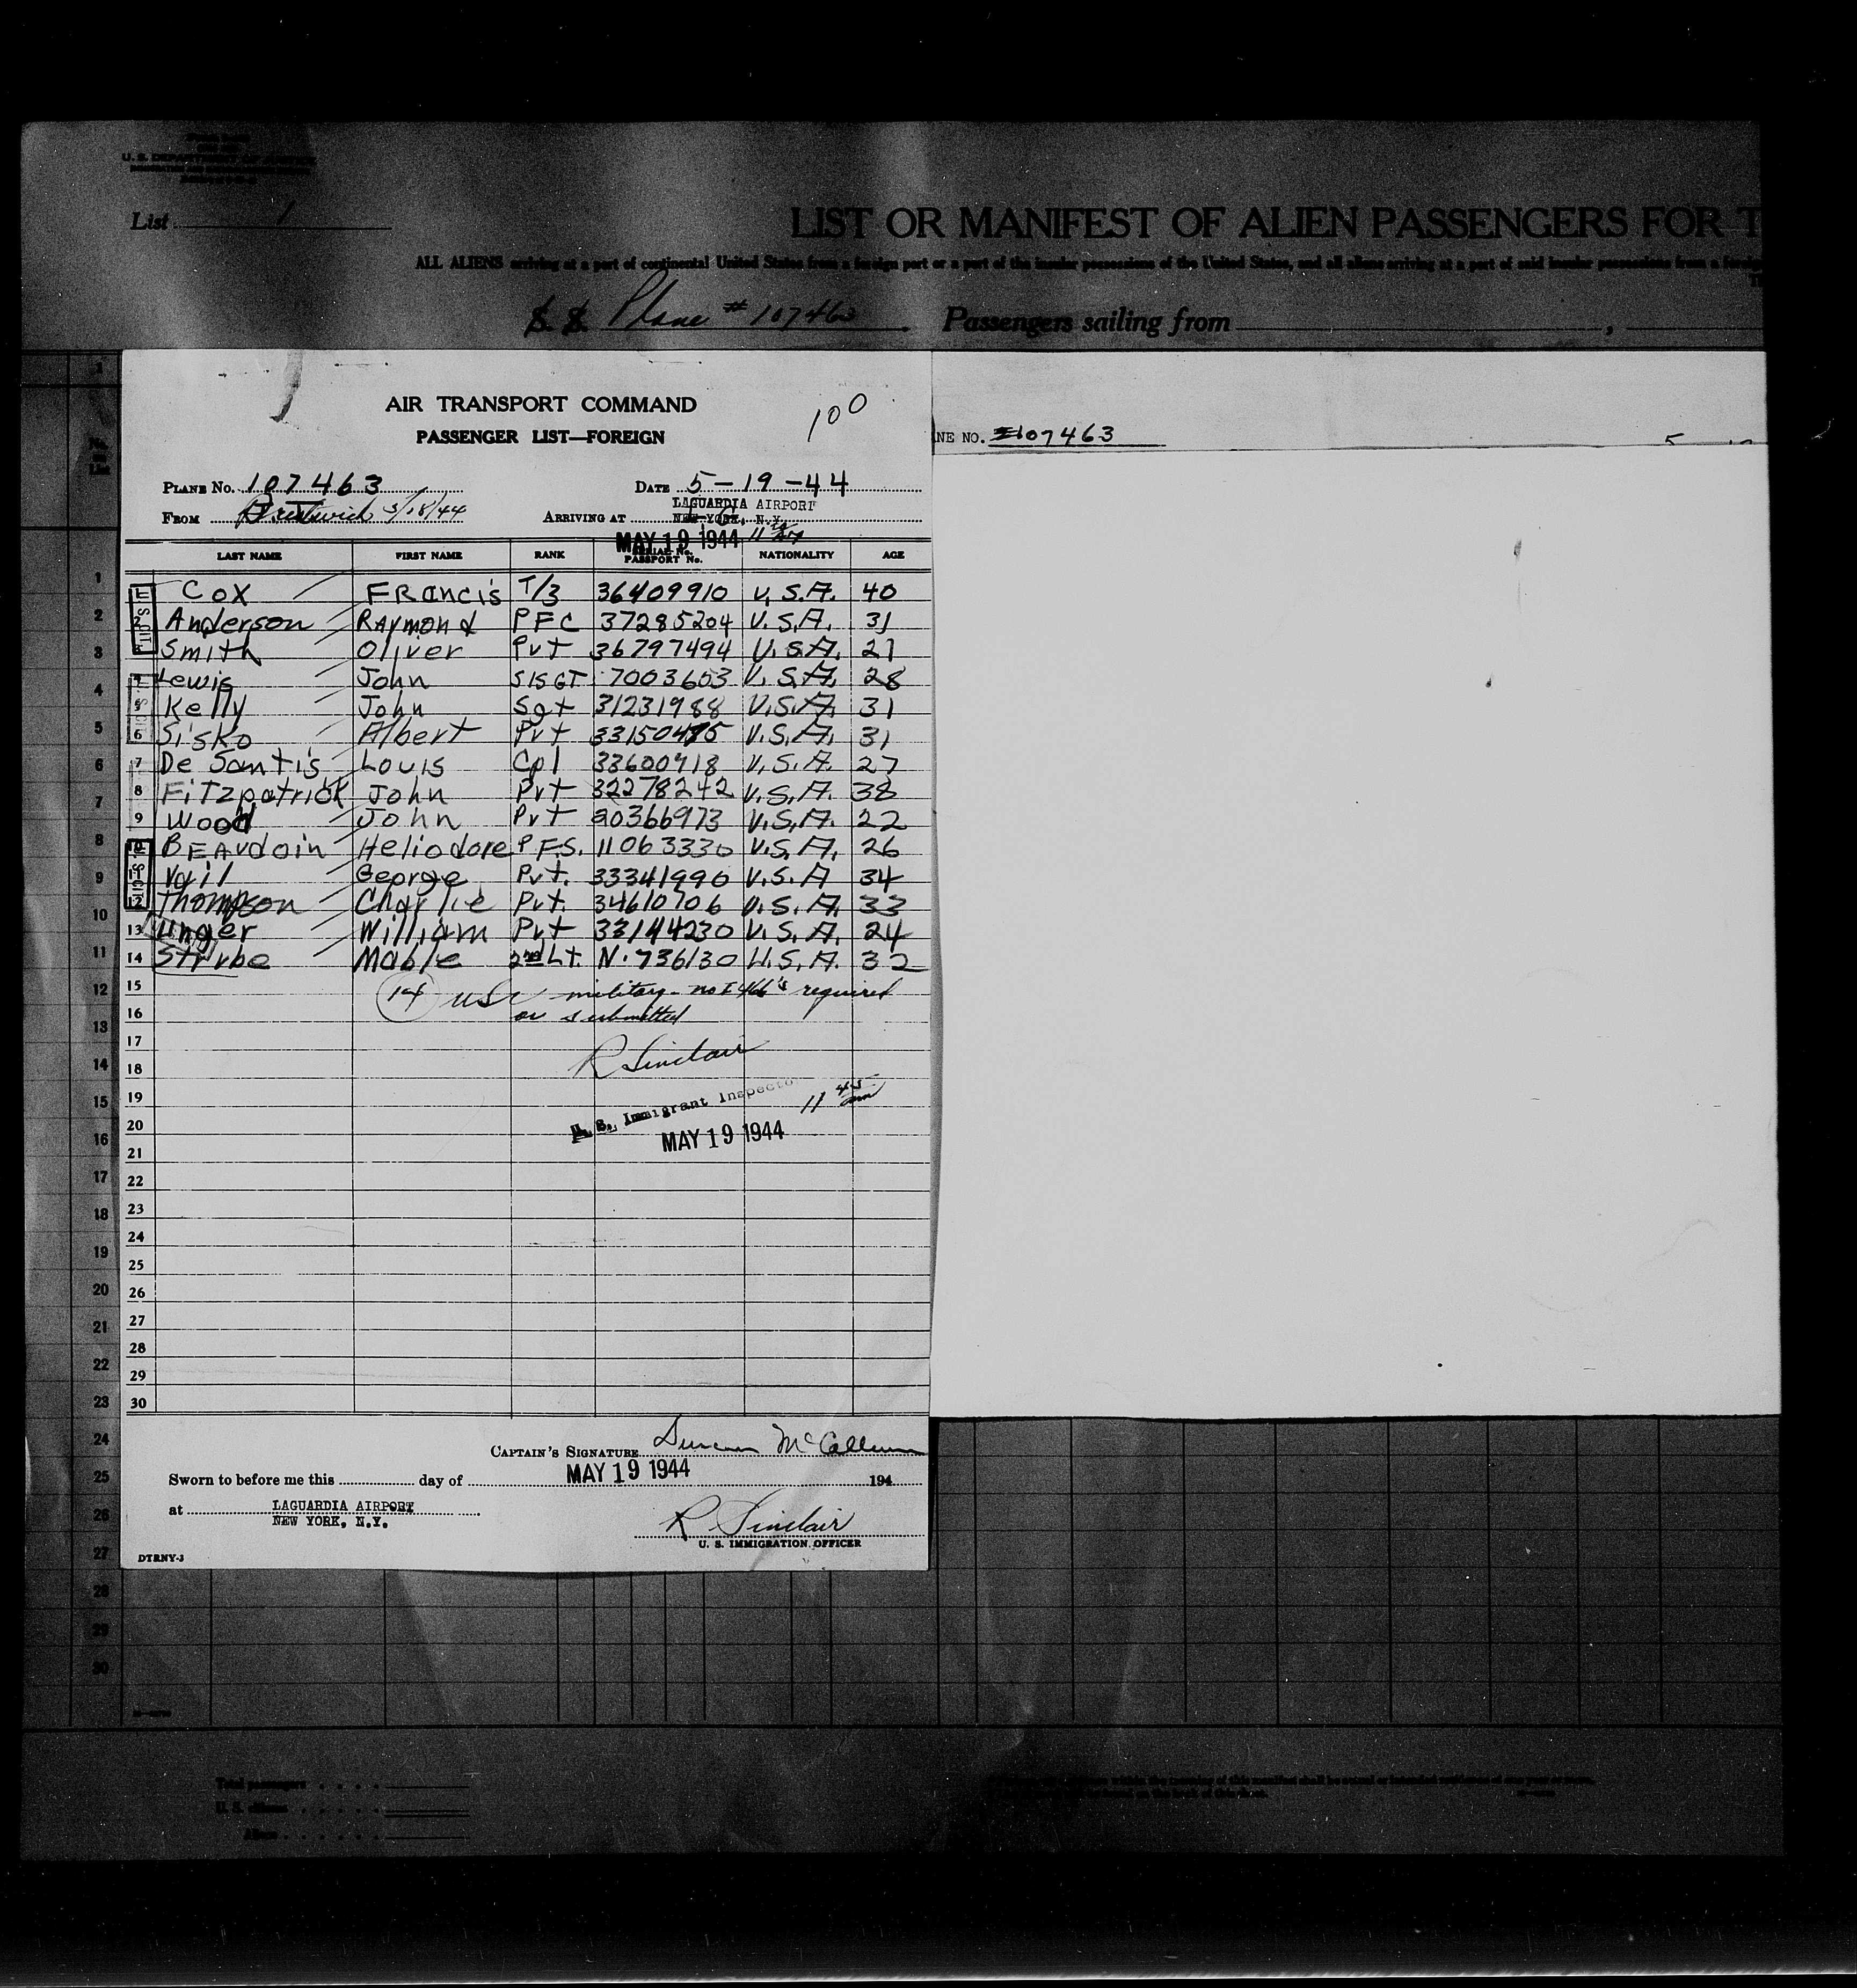 U. S. DEPARTMENT OF JUSTICE
List 1
LIST OR MANIFEST OF ALIEN PASSENGERS FOR T
ALL ALIENS arriving at a port of continental United States from a foreign port or a port of the insular possessions of the United States, and all aliens arriving at a port of said insular possessions from a foreign
S. S. Plane # 107463 Passengers sailing from ,
AIR TRANSPORT COMMAND
PASSENGER LIST—FOREIGN
10 0
NE NO. 107463
PLANE NO. 107463 DATE 5-19-44
FROM Prestwick 5/18/44 ARRIVING AT LAGUARDIA AIRPORT
NEW YORK, N.Y.
MAY 19 1944 11
LAST NAME FIRST NAME RANK SERIAL No. PASSPORT No. NATIONALITY AGE
1 Cox Francis T/3 36409910 U.S.A. 40
2 Anderson Raymond PFC 37285204 U.S.A. 31
3 Smith Oliver Pvt 36797494 U.S.A. 21
4 Lewis John S/SGT 7003603 U.S.A. 28
5 Kelly John Sgt 31231988 U.S.A. 31
6 Sisko Albert Pvt 33150475 U.S.A. 31
7 De Santis Louis Cpl 33600918 U.S.A. 27
8 Fitzpatrick John Pvt 32278242 U.S.A. 38
9 Wood John Pvt 20366973 U.S.A. 22
10 BEAudoin Heliodore PFS. 11063330 U.S.A. 26
11 Vail George Pvt. 33341996 U.S.A 34
12 Thompson Charlie Pvt. 34610706 U.S.A. 33
13 Unger William Pvt 33144230 U.S.A. 24
14 Strube Mable 2nd Lt. N.736130 U.S.A. 32
15 14 USC military - no I 466's required
16 or submitted
17
R Sinclair
18
19
U. S. Immigrant Inspector 11 45 am
20
MAY 19 1944
21
22
23
24
25
26
27
28
29
30
CAPTAIN'S SIGNATURE Duncan McCallum
Sworn to before me this day of MAY 19 1944 194
at LAGUARDIA AIRPORT
NEW YORK, N.Y.
R. Sinclair
U. S. IMMIGRATION OFFICER
DTRNY-3
1
2
3
4
5
6
7
8
9
10
11
12
13
14
15
16
17
18
19
20
21
22
23
24
25
26
27
28
29
30
Total passengers
U. S. citizens
Aliens